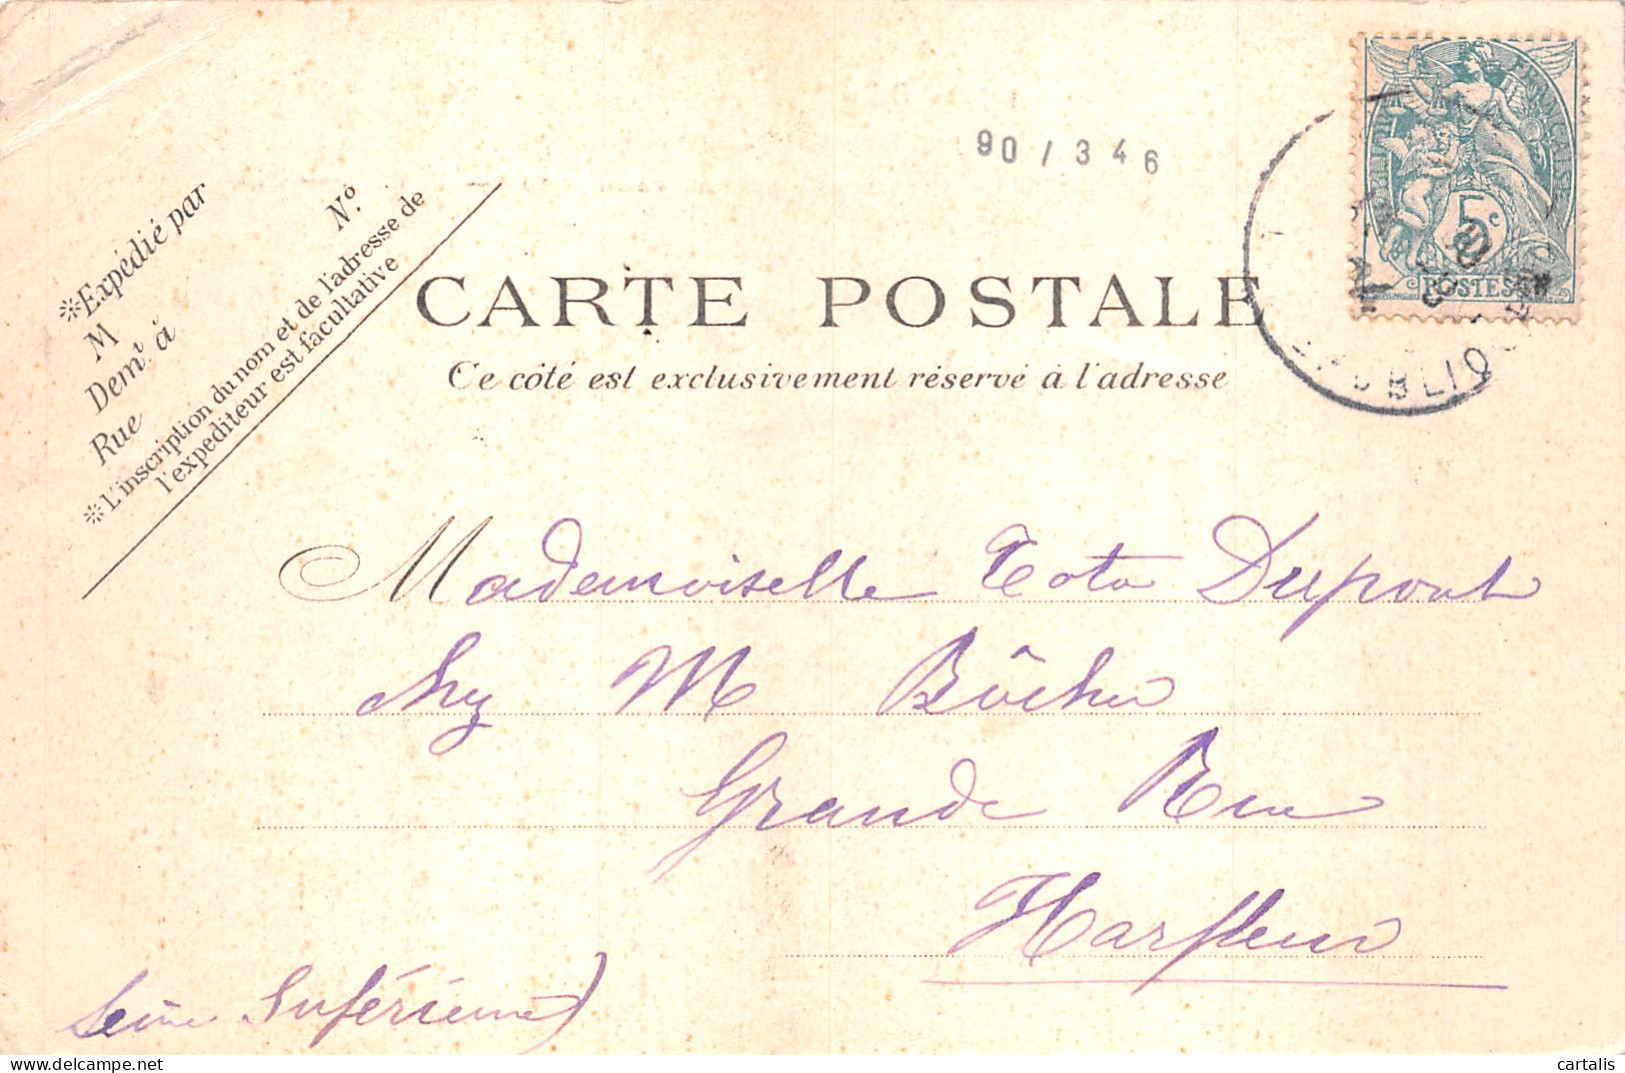 90 / 346
FRANÇAISE
5c
POSTES
※Expédié par
M
Demt à
Rue
No.
※L'inscription du nom et de l'adresse de
l'expéditeur est facultative
CARTE POSTALE
Ce côté est exclusivement réservé à l'adresse
Mademoiselle Toto Dupont
chez M
Grande Rue
Harfleur
Seine Inférieure)
cartalis